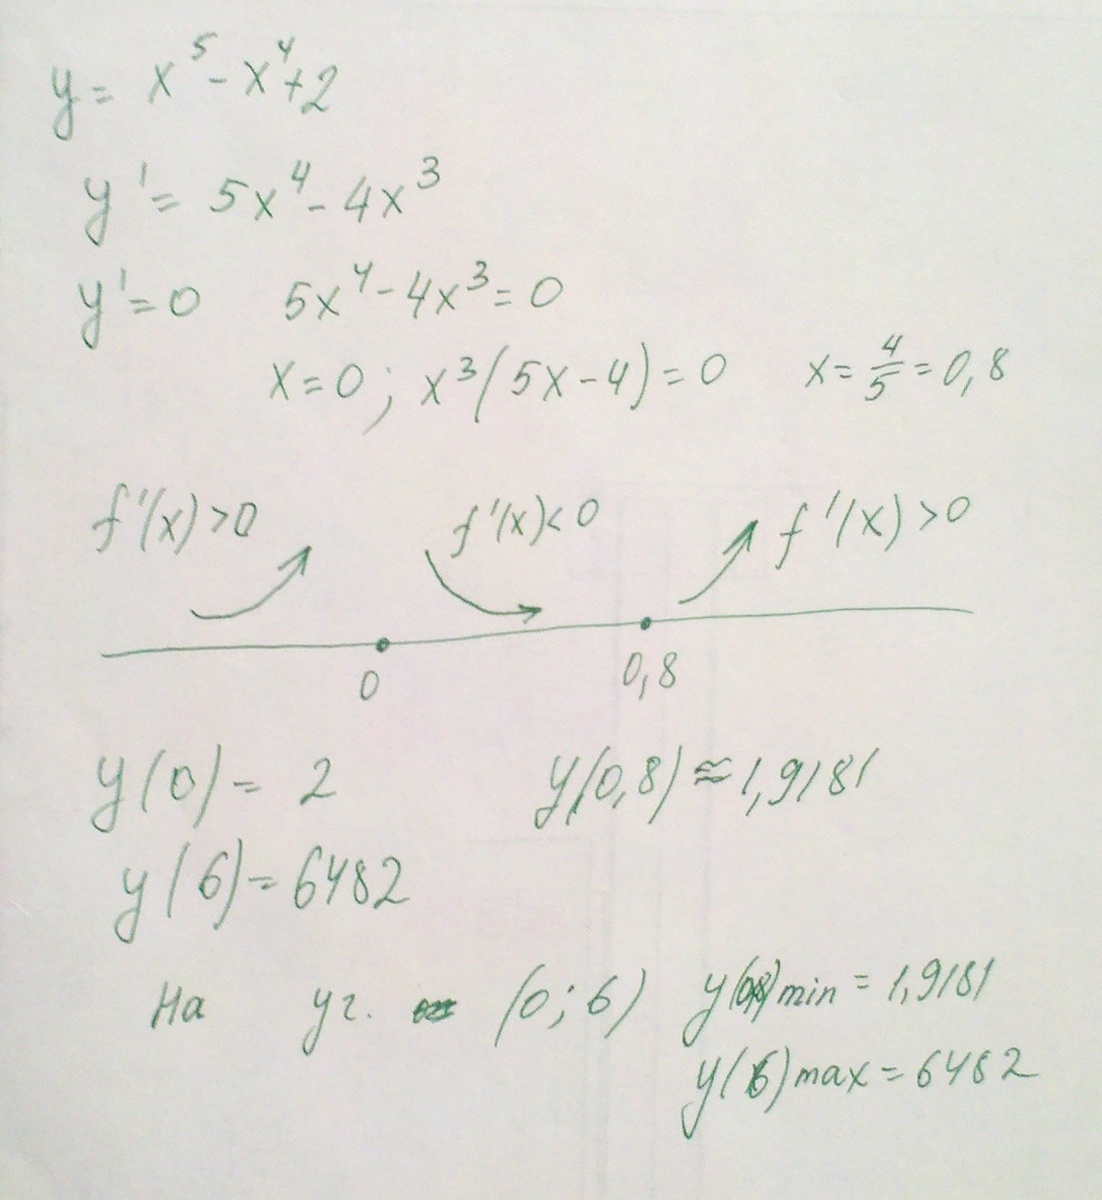 y = x⁵ - x⁴ + 2
y' = 5x⁴ - 4x³
y' = 0 5x⁴ - 4x³ = 0
x = 0; x³(5x - 4) = 0 x = 4/5 = 0,8
f'(x) > 0 f'(x) < 0 f'(x) > 0
0 0,8
y(0) = 2 y(0,8) ≈ 1,9181
y(6) = 6482
На уг. (0; 6) y(0,8) min = 1,9181
y(6) max = 6482